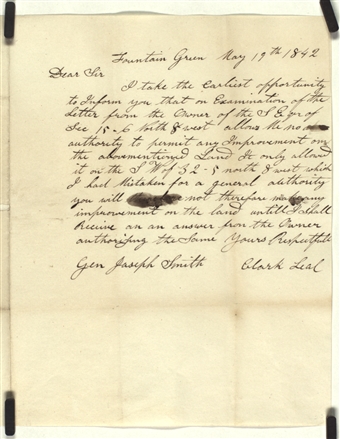 Fountain Green May 19th 1842
Dear Sir
I take the earliest opportunity
to Inform you that on Examination of the
Letter from the Owner of the S E qr of
Sec 15-6 North 8 west allows Me no
authority to permit any Improvement on
the abovementioned Land It only allowed
it on the S W of 32-5 north 8 west which
I had Mistaken for a general authority
you will not therefore make any
improvement on the land untill I shall
Receive an an answer from the Owner
authorising the Same Yours Respectfull
Gen Joseph Smith Clark Leal